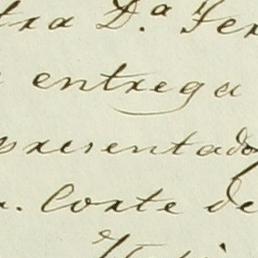 tra D.ª Fer
entrega
presentado
Corte de